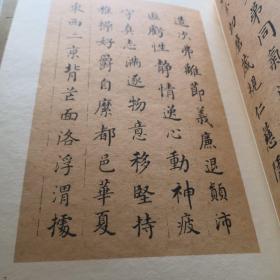 弟同氣
切磨箴規仁慈隱
造次弗離節義廉退顛沛
匪虧性靜情逸心動神疲
守真志滿逐物意移堅持
雅操好爵自縻都邑華夏
東西二京背芒面洛浮渭據